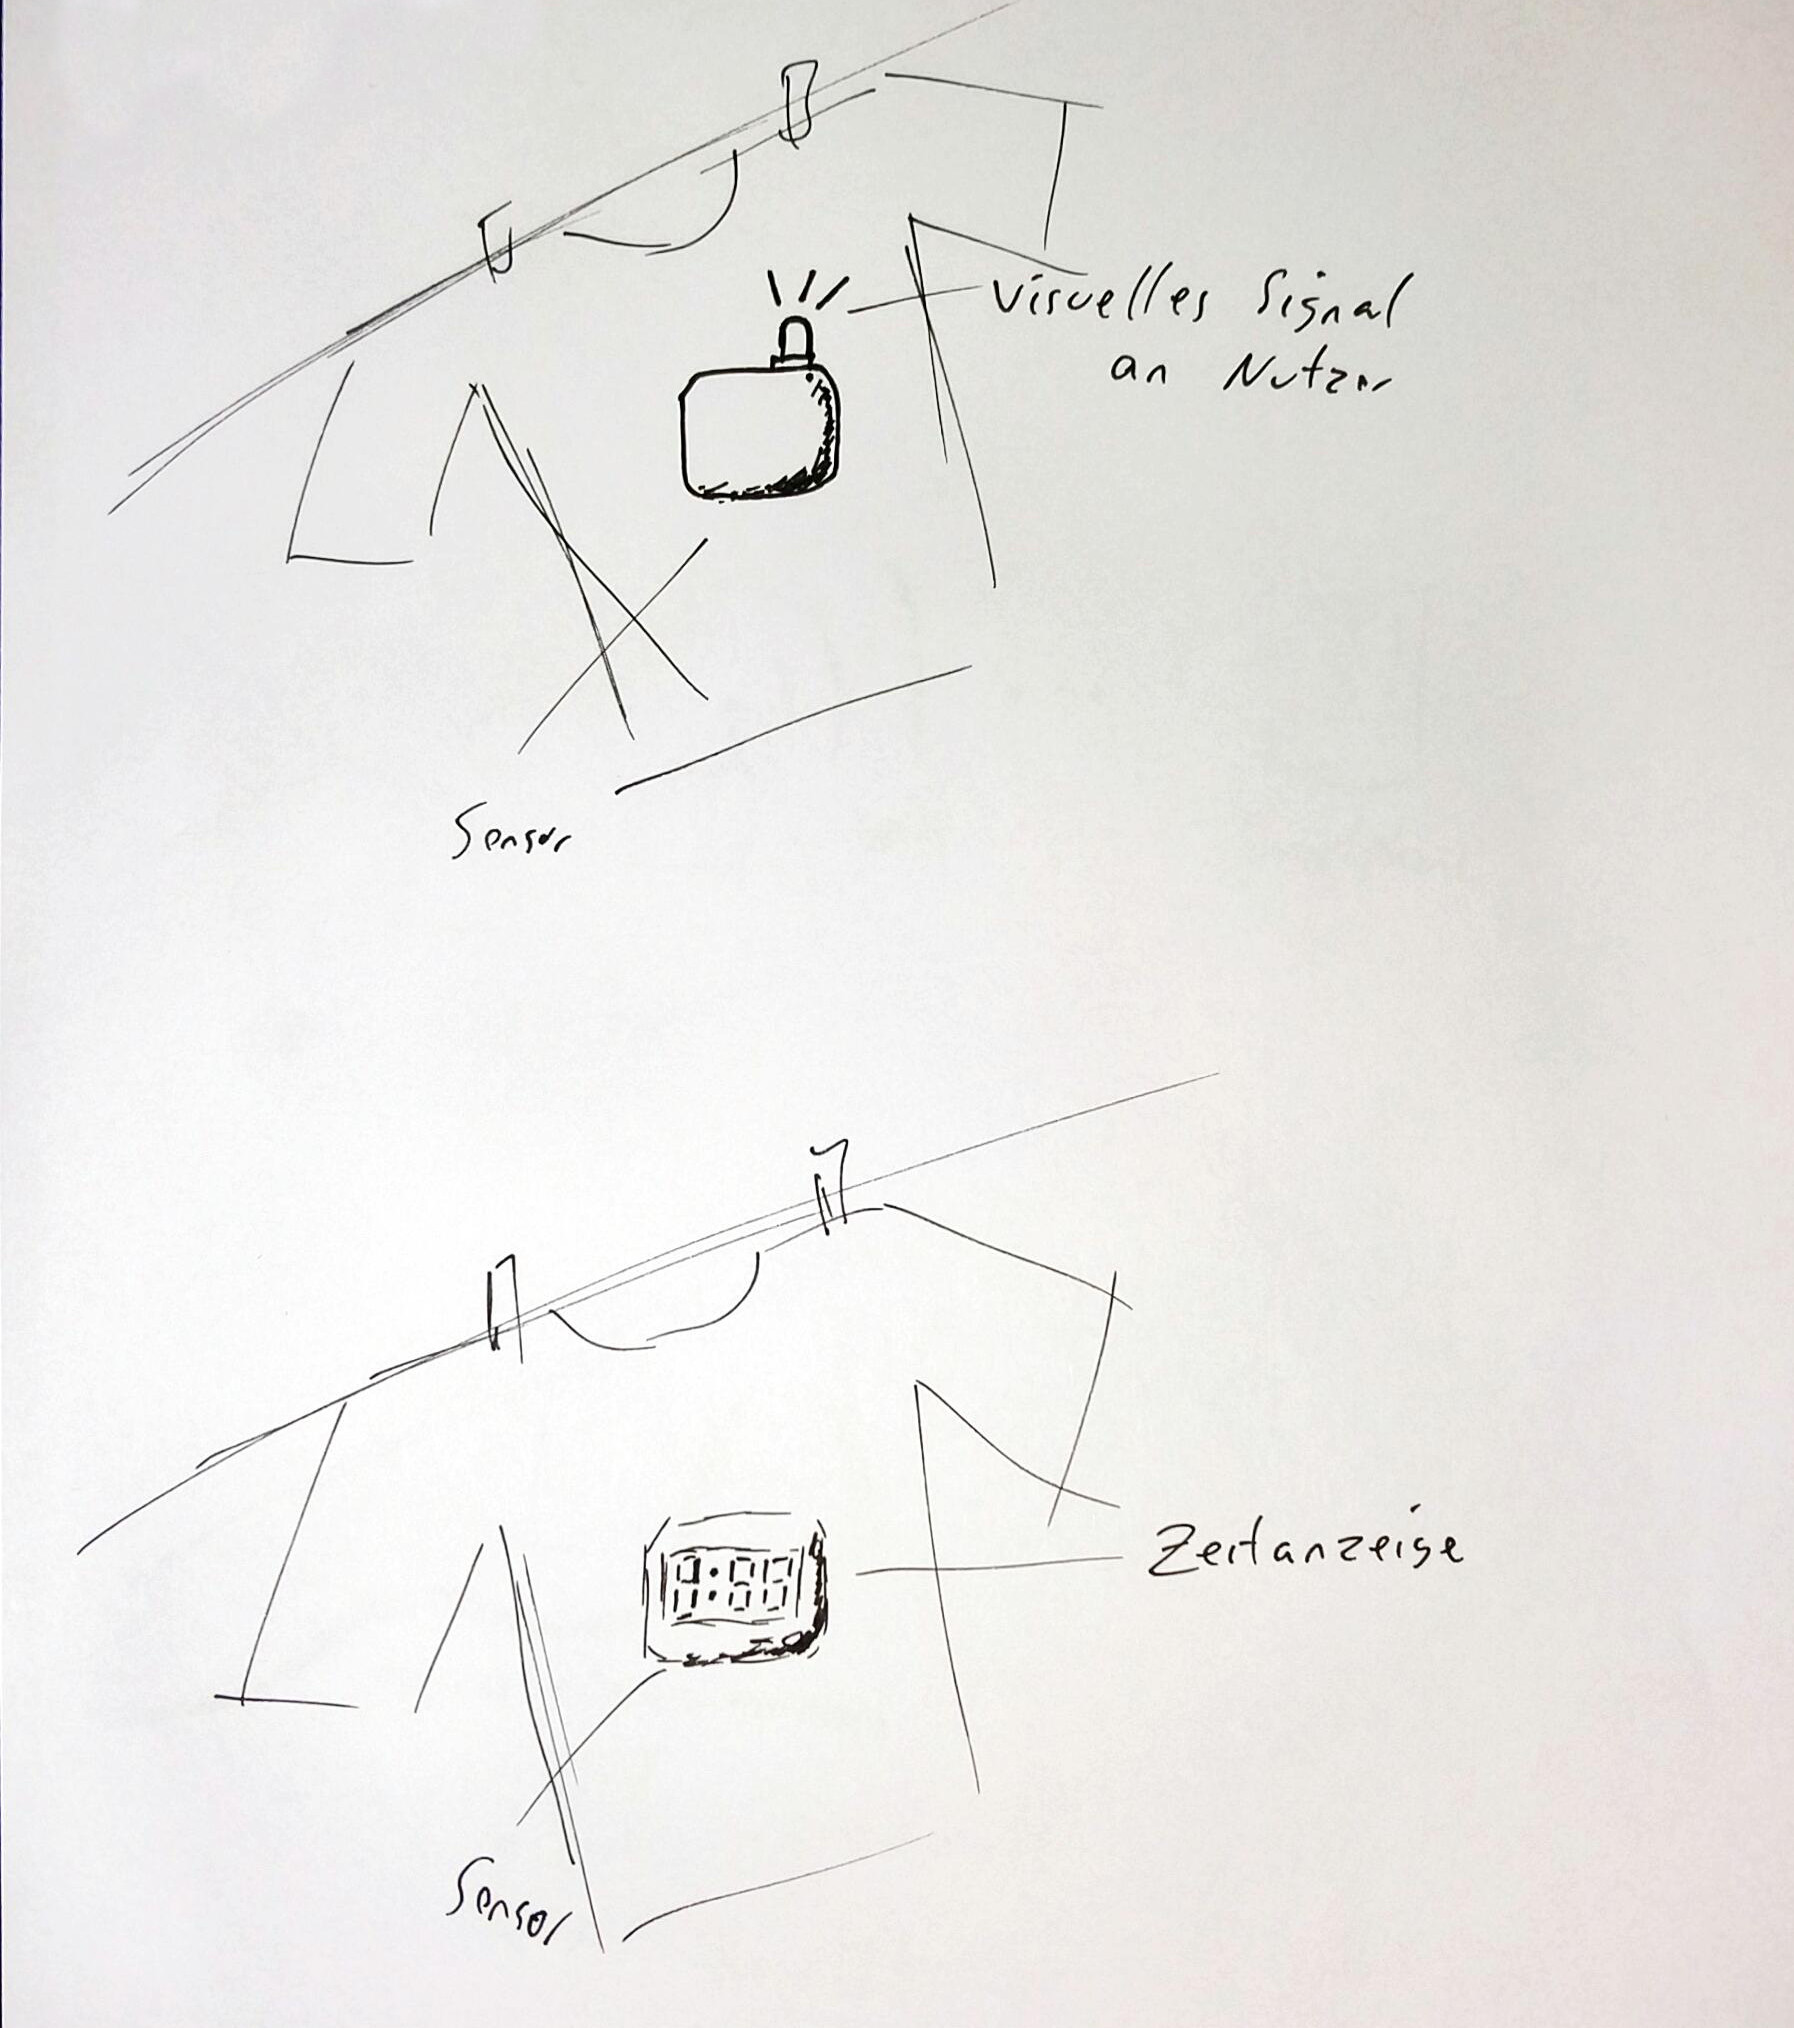 Visuelles Signal
an Nutzer
Sensor
Zeitanzeige
Sensor